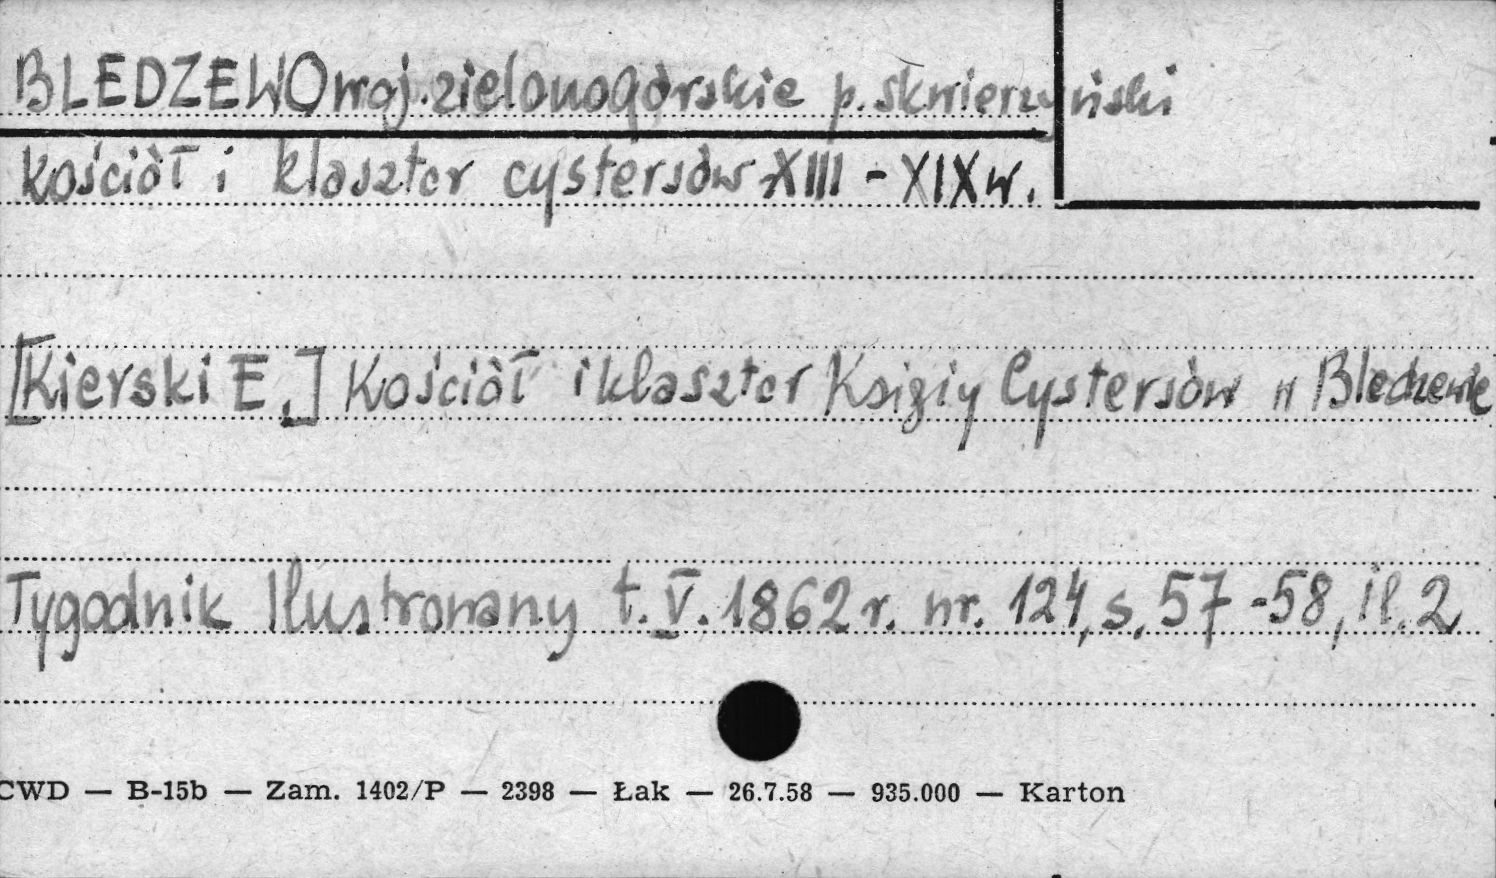 BLEDZEWO woj. zielonogórskie p. skwierzyński
kościół i klasztor cystersów XIII - XIX w.
[Kierski E.] Kościół i klasztor Księży Cystersów w Bledzewie
Tygodnik Ilustrowany t. V. 1862 r. nr. 124, s. 57-58, il. 2
CWD — B-15b — Zam. 1402/P — 2398 — Łak — 26.7.58 — 935.000 — Karton